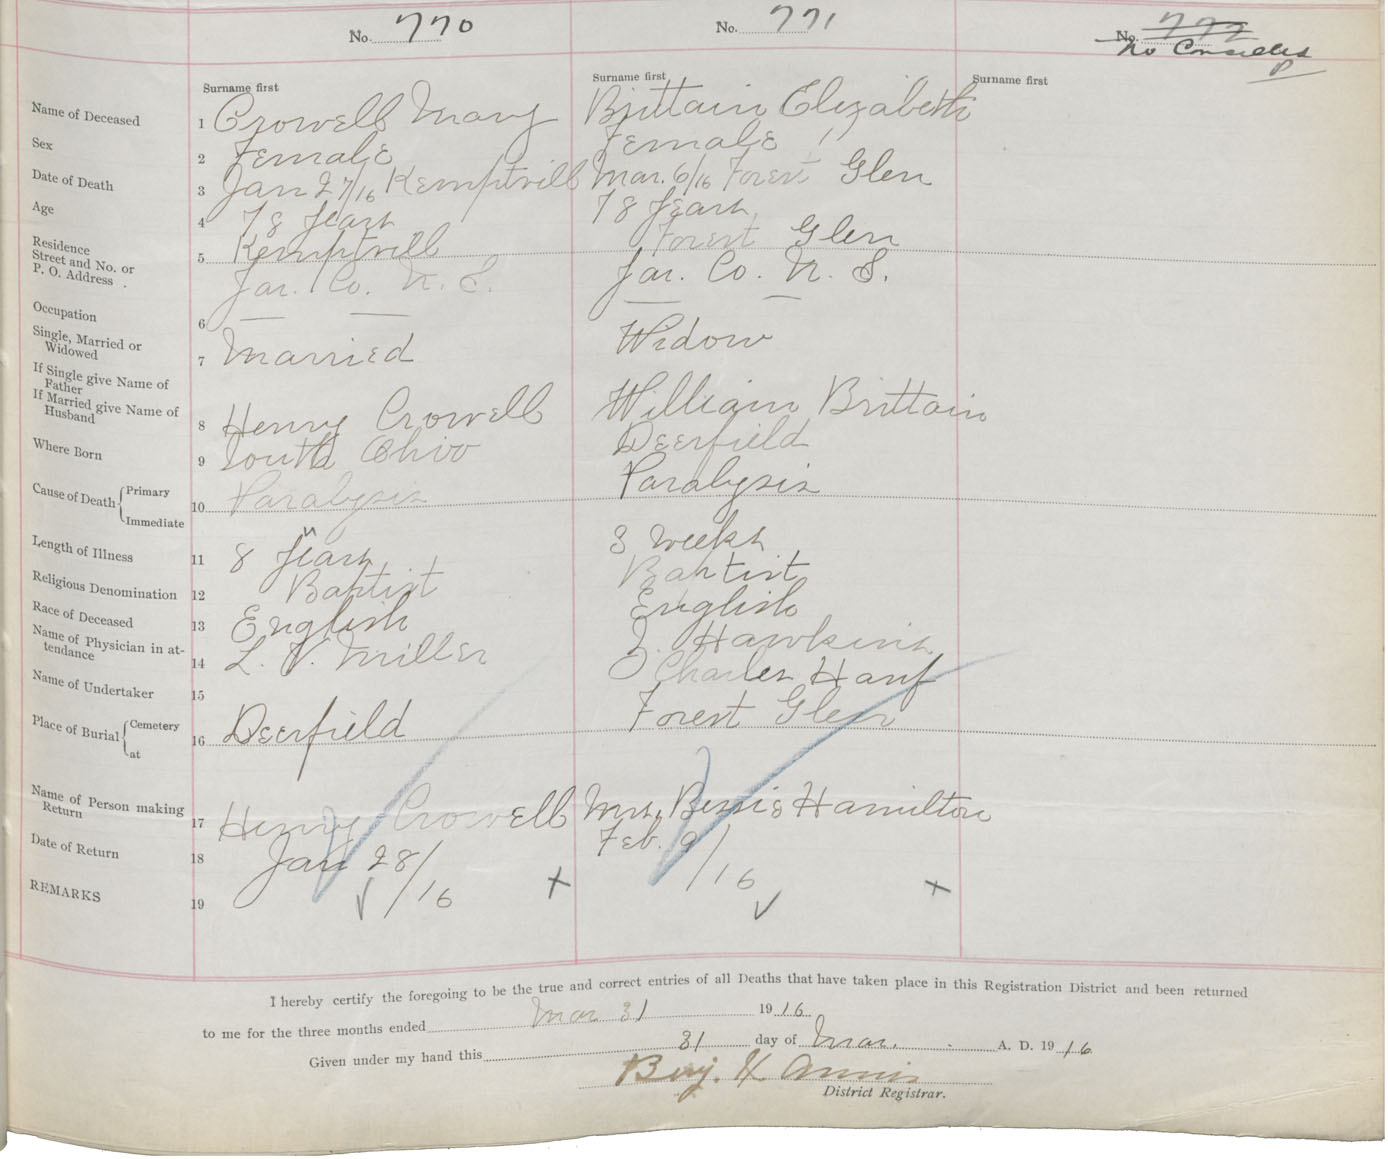 No. 770 No. 771 No. 772
No Cancelled
Surname first Surname first Surname first
Name of Deceased 1 Crowell Mary Brittain Elizabeth
Sex 2 Female Female "
Date of Death 3 Jan 27/16 Kemptvill Mar. 6/16 Forest Glen
Age 4 78 years 78 years
Residence Street and No. or P. O. Address 5 Kemptvill Forest Glen
Yar. Co. N. S. Yar. Co. N. S.
Occupation 6 — — — —
Single, Married or Widowed 7 Married Widow
If Single give Name of Father
If Married give Name of Husband 8 Henry Crowell William Brittain
Where Born 9 South Ohio Deerfield
Cause of Death { Primary Immediate 10 Paralysis Paralysis
Length of Illness 11 8 years 3 weeks
Religious Denomination 12 Baptist Baptist
Race of Deceased 13 English English
Name of Physician in attendance 14 L. V. Miller J. Hawkins
Name of Undertaker 15 Charles
Place of Burial { Cemetery at 16 Deerfield Forest Glen
Name of Person making Return 17 Henry Crowell Mrs. Hamilton
Date of Return 18 Jan 28/16 Feb. 9/16
REMARKS 19
I hereby certify the foregoing to be the true and correct entries of all Deaths that have taken place in this Registration District and been returned
to me for the three months ended Mar 31 1916
Given under my hand this 31 day of Mar. A. D. 1916
Benj. H. Annis
District Registrar.